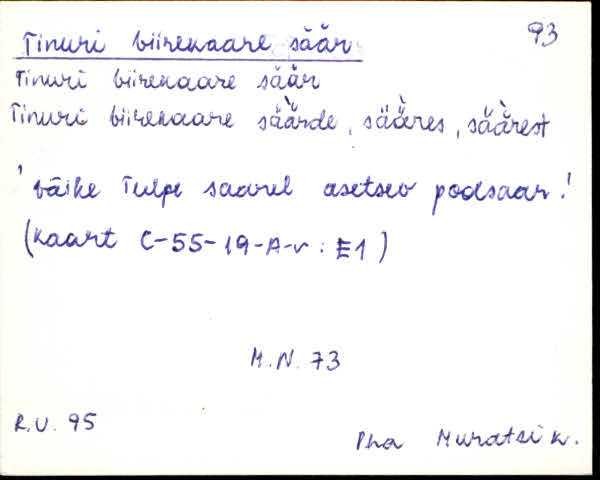 93
Tinuri biirekaare säär
Tinuri biirekaare säär
Tinuri biirekaare säà̈rde, sääres, säärest
'väike Tulpe saarel asetsev poolsaar!
(kaart C-55-19-A-v: E1)
M.N. 73
R.U. 95
Pha Muratsi k.